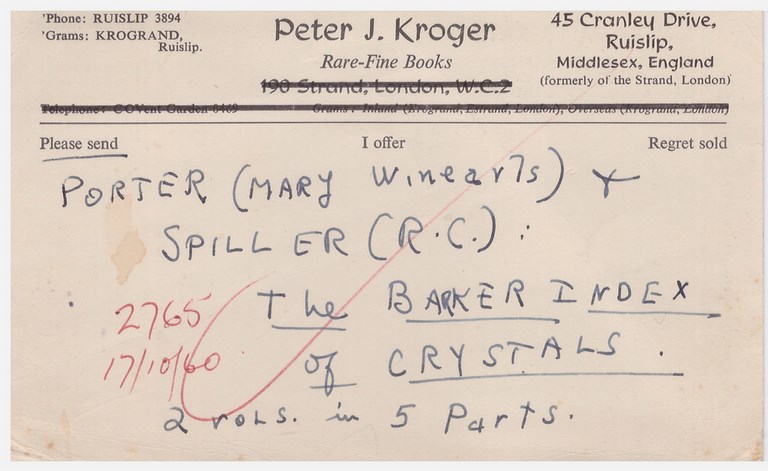 'Phone: RUISLIP 3894
'Grams: KROGRAND,
Ruislip.
Peter J. Kroger
Rare-Fine Books
190 Strand, London, W.C.2
45 Cranley Drive,
Ruislip,
Middlesex, England
(formerly of the Strand, London)
Telephone: COVent Garden 8469 Grams: Inland (Krogrand, Estrand, London), Overseas (Krogrand, London)
Please send I offer Regret sold
PORTER (MARY Winearls) &
SPILLER (R.C.) :
The BARKER INDEX
of CRYSTALS.
2 vols. in 5 Parts.
2765
17/10/60